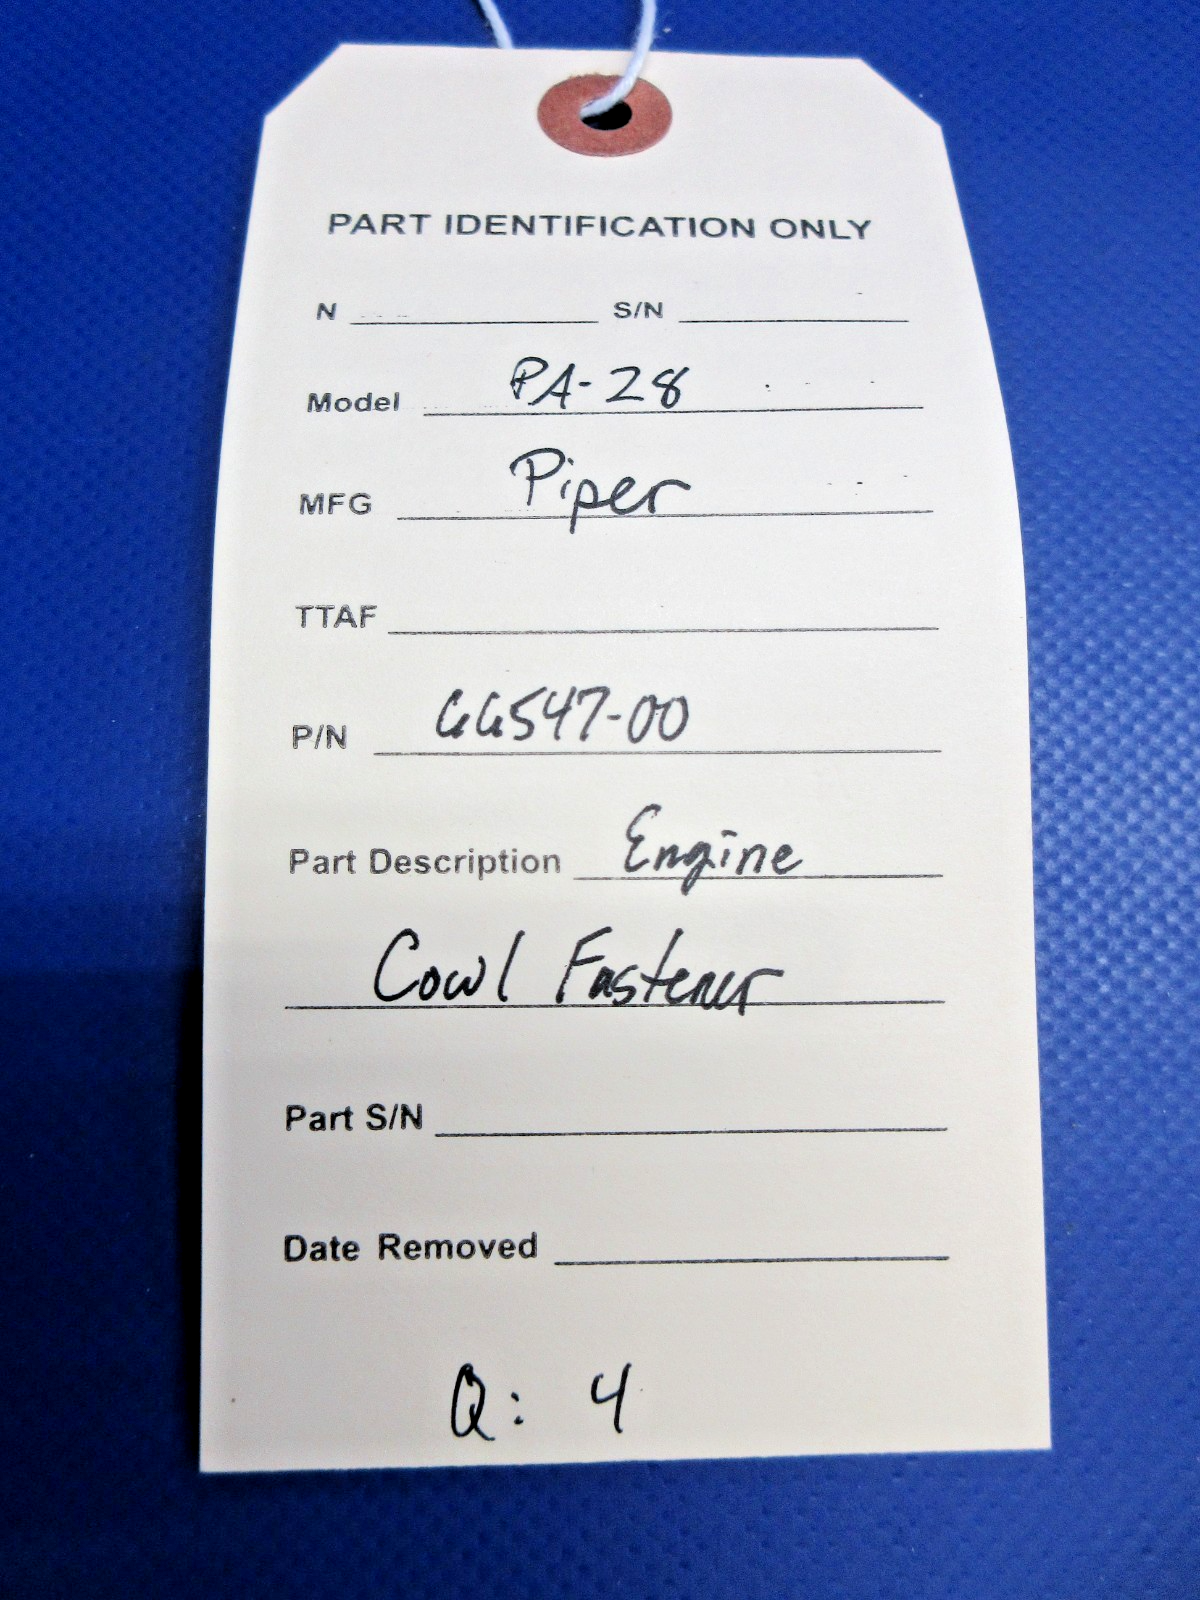 PART IDENTIFICATION ONLY
N S/N
Model PA-28
MFG Piper
TTAF
P/N 66547-00
Part Description Engine
Cowl Fastener
Part S/N
Date Removed
Q: 4